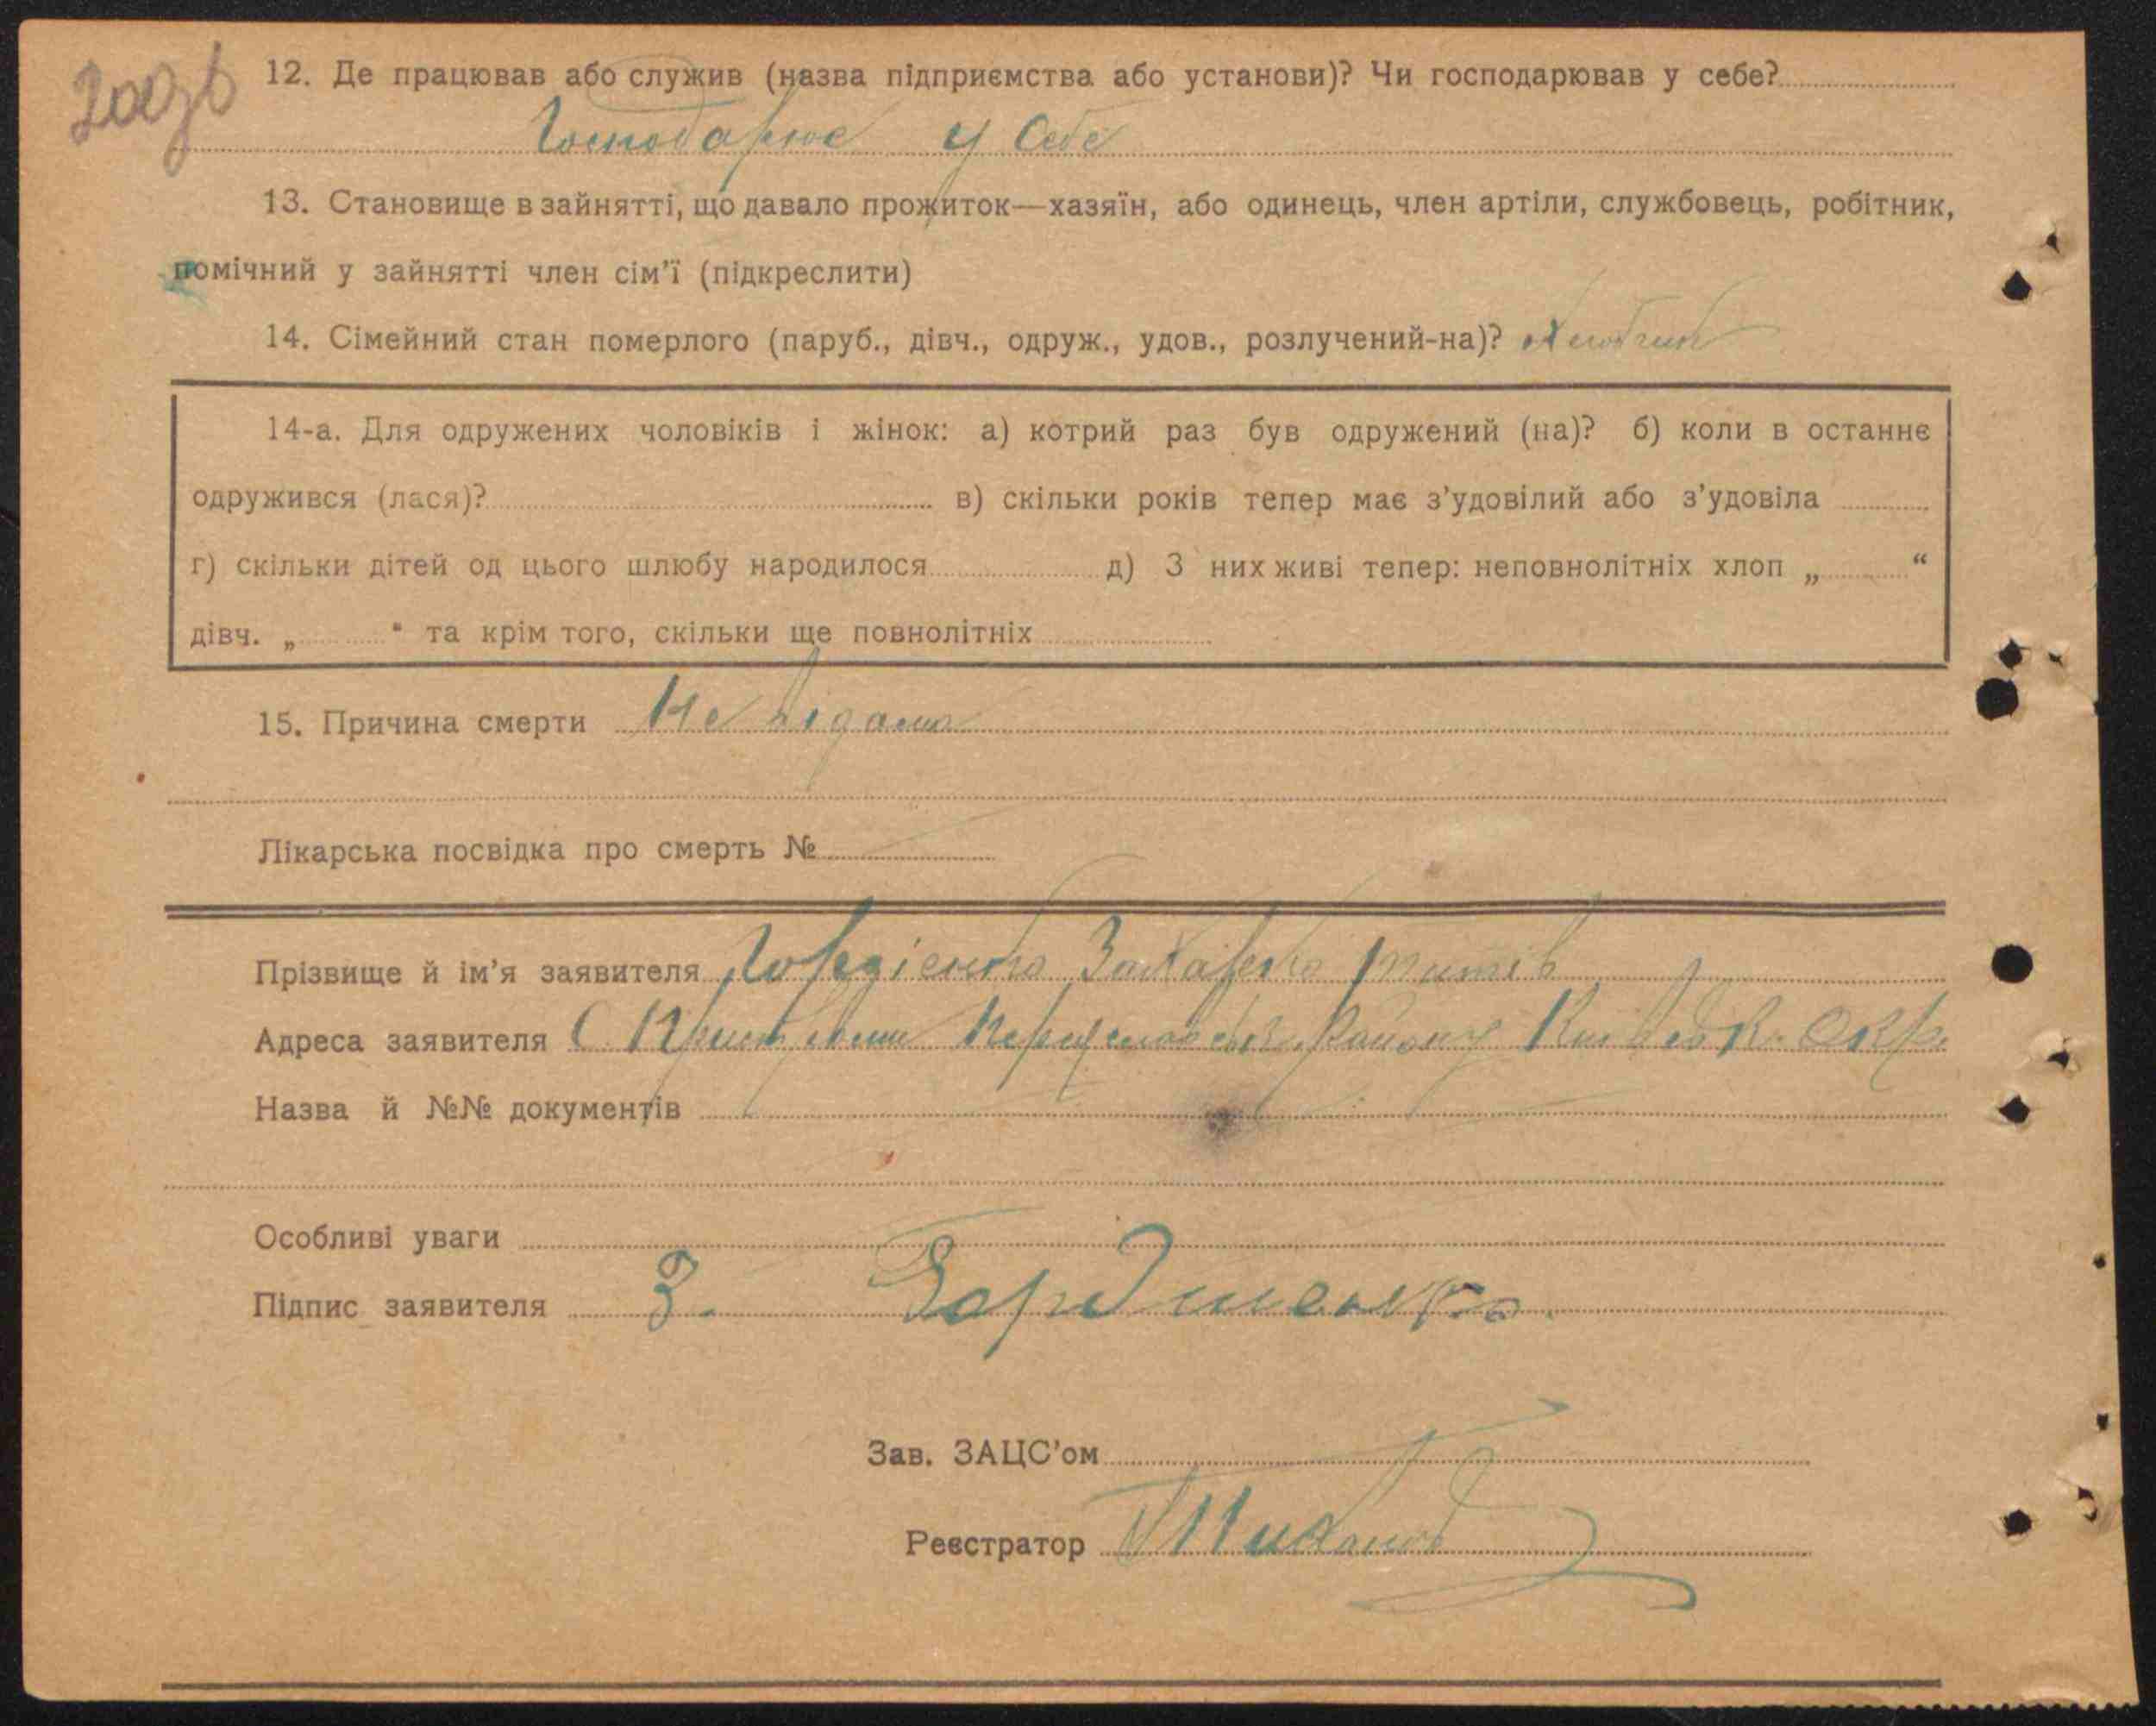 12. Де працював або служив (назва підприємства або установи)? Чи господарював у себе?
Господарює у себе
13. Становище в зайнятті, що давало прожиток—хазяїн, або одинець, член артіли, службовець, робітник,
помічний у зайнятті член сім'ї (підкреслити)
14. Сімейний стан померлого (паруб., дівч., одруж., удов., розлучений-на)?
14-а. Для одружених чоловіків і жінок: а) котрий раз був одружений (на)? б) коли в останнє
одружився (лася)? в) скільки років тепер має з'удовілий або з'удовіла
г) скільки дітей од цього шлюбу народилося д) З них живі тепер: неповнолітніх хлоп „ “
дівч. „ “ та крім того, скільки ще повнолітніх
15. Причина смерти Не відома
Лікарська посвідка про смерть №
Прізвище й ім'я заявителя Гордієнко Захарко
Адреса заявителя С. району Київськ. Окр.
Назва й №№ документів
Особливі уваги
Підпис заявителя З. Гордиенко.
Зав. ЗАЦС'ом
Реєстратор